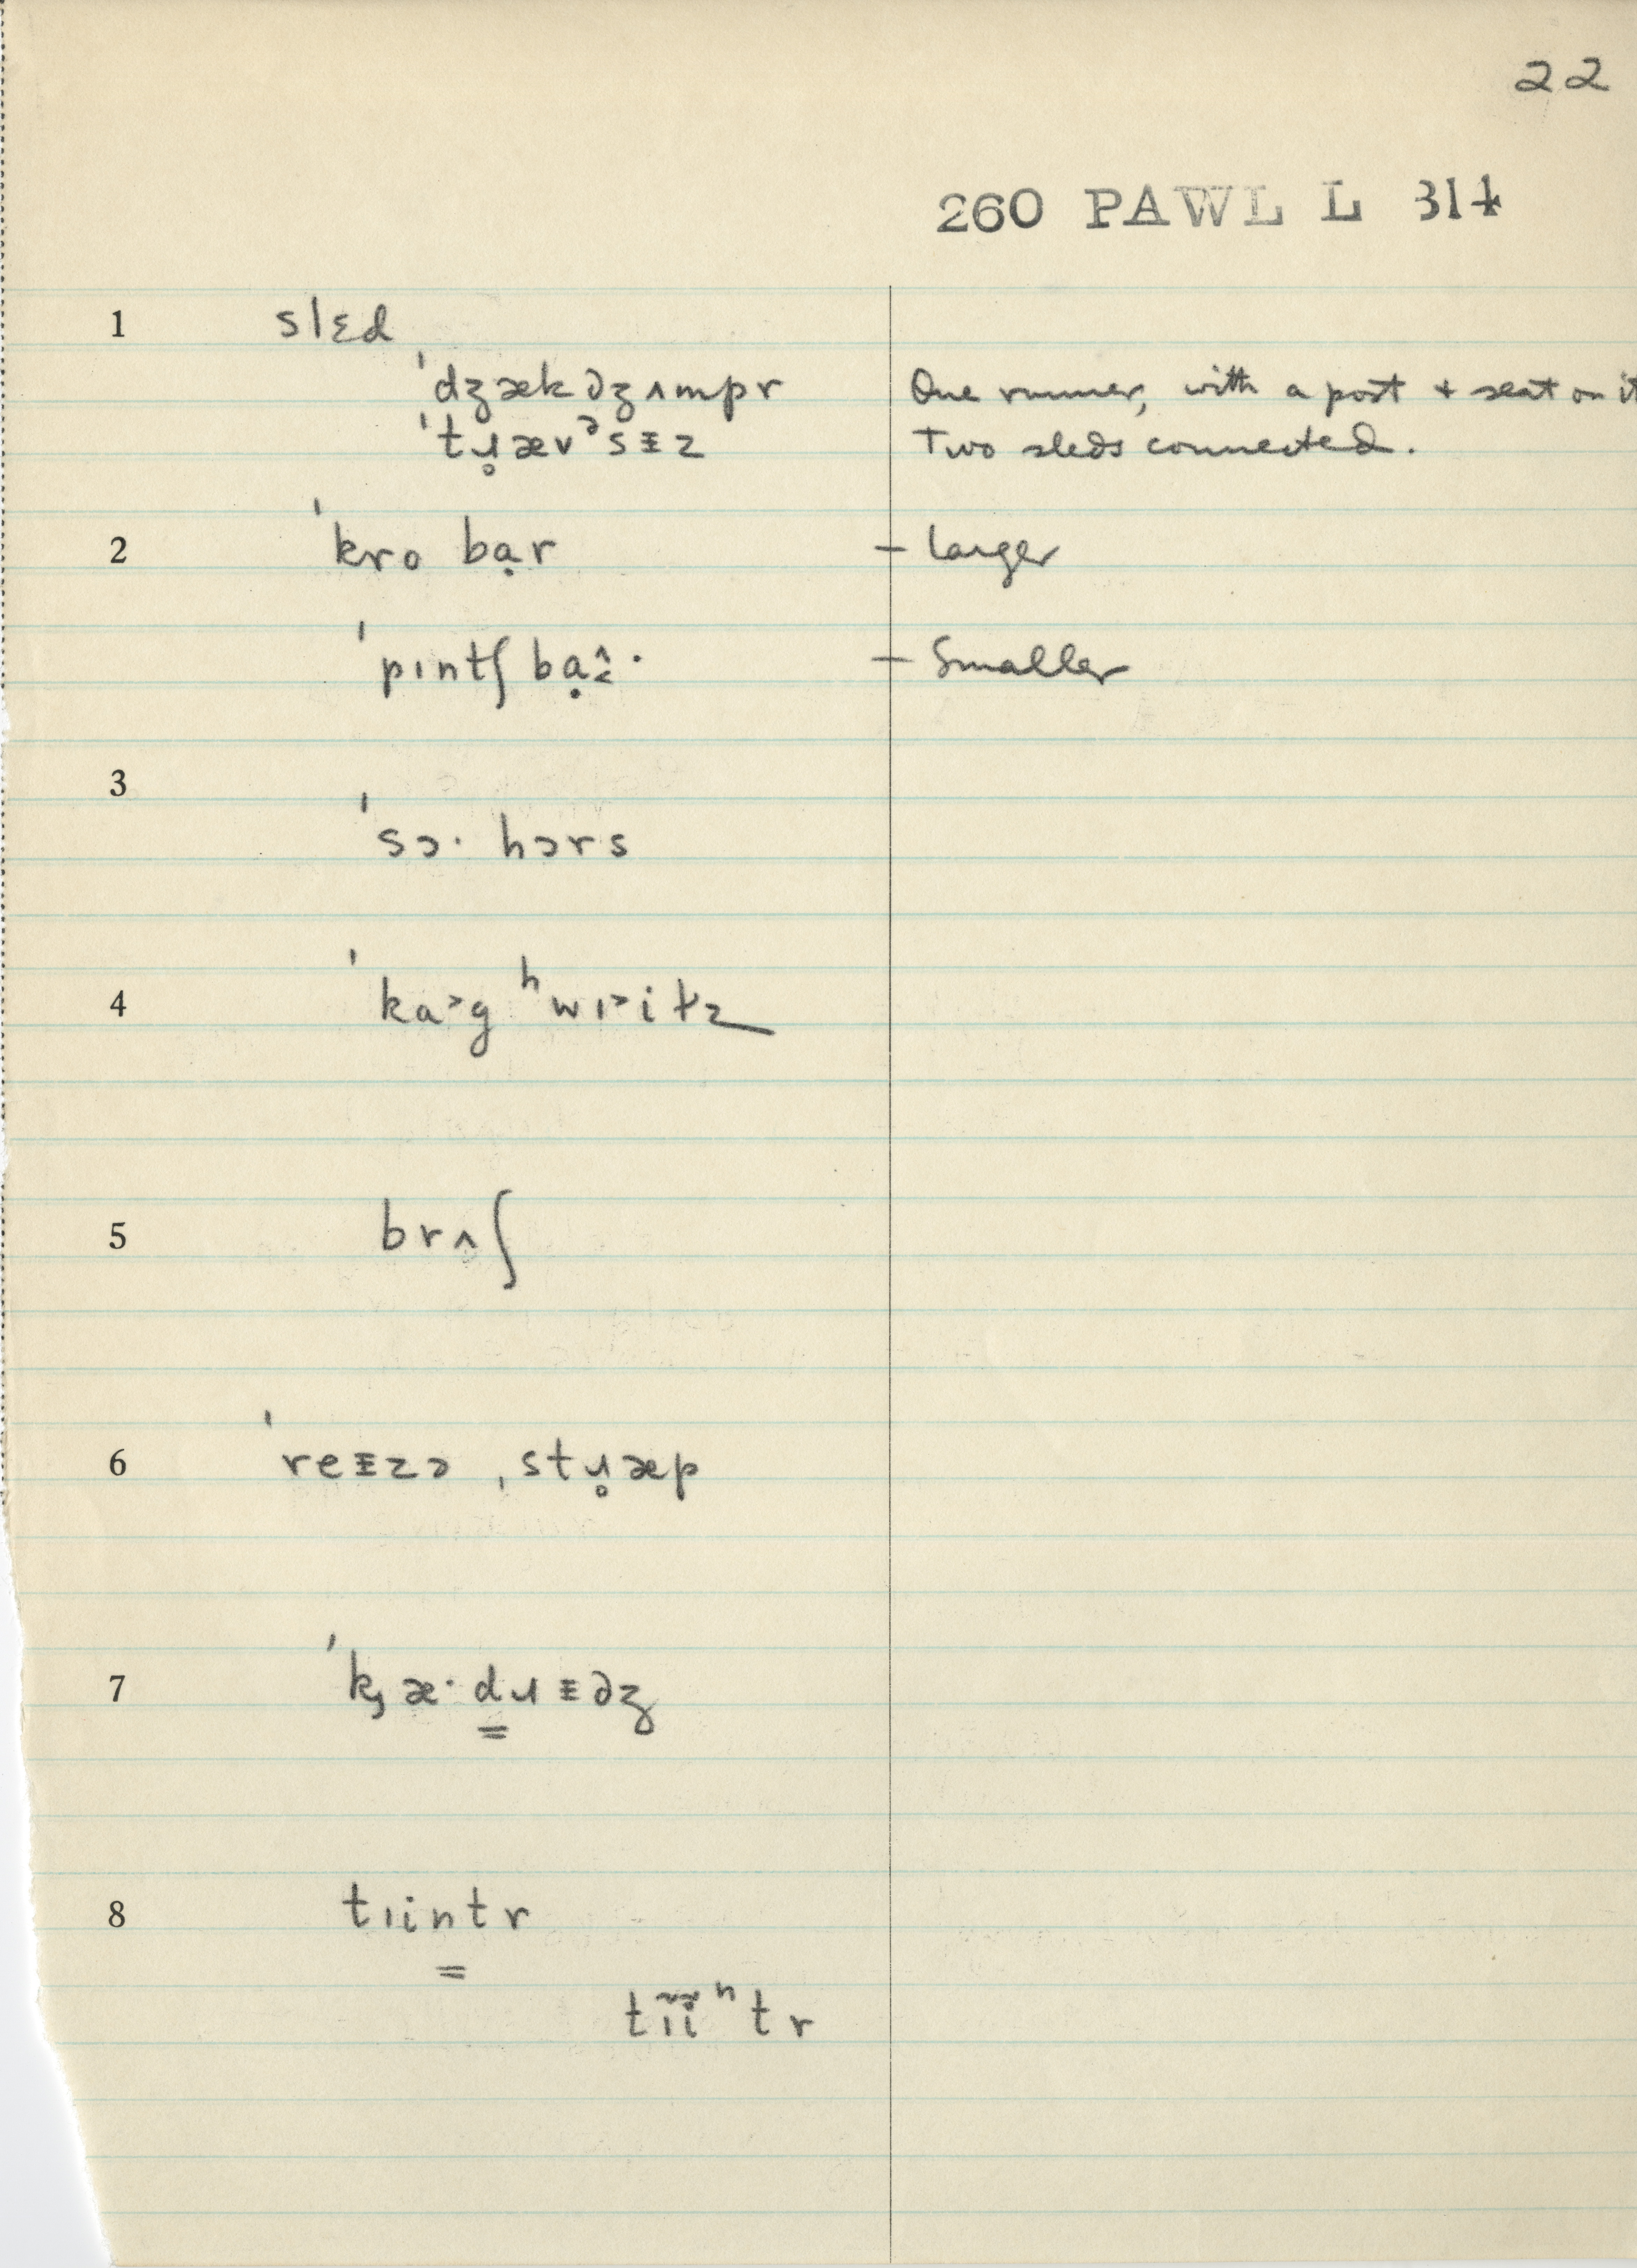 22
260 PAWL L 314
1 slɛd
ˈdʒækdʒʌmpr One runner, with a post + seat on it
ˈtɹ̥ævᵊsɪz Two sleds connected.
2 ˈkro bạr – Larger
ˈpɪntʃ bạ – Smaller
3
ˈsɔ· hɔrs
4 ˈka˃g ʰwɪ˃itz
5 brʌʃ
6 ˈreɪzə ˌstɹ̥æp
7 ˈkæ·d̳ɹɪdʒ
8 tɪin̳tr
tɪ̃ĩⁿtr